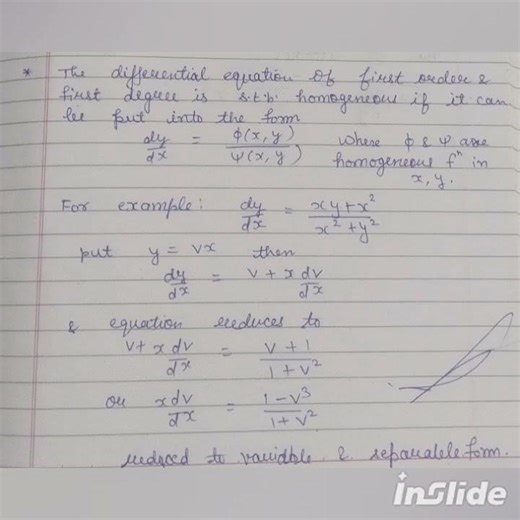 * The differential equation of first order &
first degree is s.t.b. homogeneous if it can
be put into the form
dy/dx = ϕ(x, y)/ψ(x, y) where ϕ & ψ are
homogeneous fⁿ in
x, y.
For example: dy/dx = xy+x²/x²+y²
put y = vx then
dy/dx = v + x dv/dx
& equation reduces to
v+ x dv/dx = v+1/1+v²
or x dv/dx = 1-v³/1+v²
reduced to variable & separable form.
inSlide